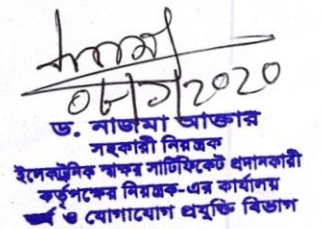 ০৮/০৭/২০২০
ড. নাজমা আক্তার
সহকারী নিয়ন্ত্রক
ইলেকট্রনিক স্বাক্ষর সার্টিফিকেট প্রদানকারী
কর্তৃপক্ষের নিয়ন্ত্রক-এর কার্যালয়
ও যোগাযোগ প্রযুক্তি বিভাগ